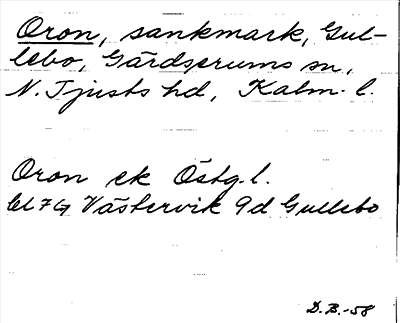 Oron, sankmark, Gul-
lebo, Gärdserums sn,
N. Tjusts hd, Kalm. l.
Oron ek Östg. l.
bl 7G Västervik 9d Gullebo
D.B.-58